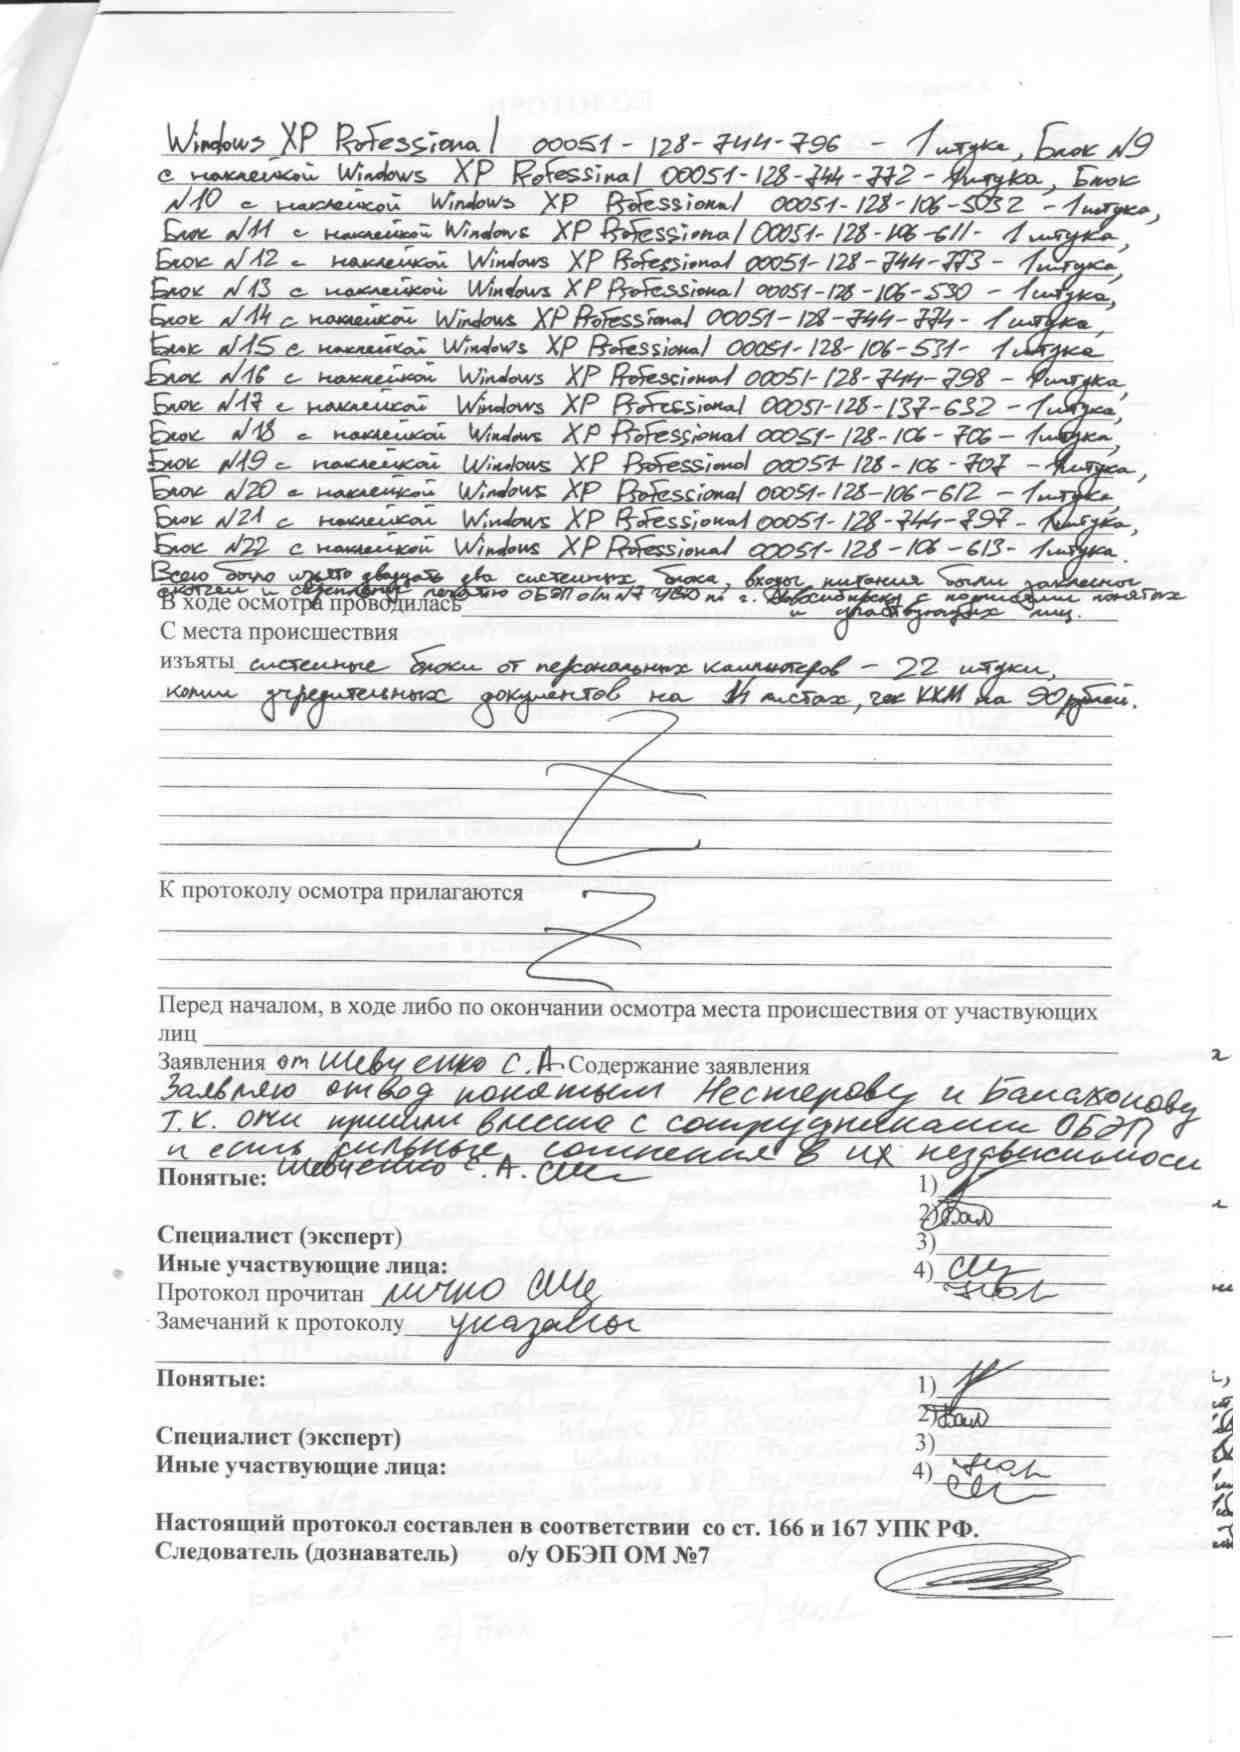 Windows XP Professional 00051-128-744-796 - 1 штука, Блок №9
с наклейкой Windows XP Professinal 00051-128-744-772 - 1 штука, Блок
№10 с наклейкой Windows XP Professional 00051-128-106-5032 - 1 штука,
Блок №11 с наклейкой Windows XP Professional 00051-128-106-611- 1 штука,
Блок №12 с наклейкой Windows XP Professional 00051-128-744-773 - 1 штука,
Блок №13 с наклейкой Windows XP Professional 00051-128-106-530 - 1 штука,
Блок №14 с наклейкой Windows XP Professional 00051-128-744-774- 1 штука,
Блок №15 с наклейкой Windows XP Professional 00051-128-106-531- 1 штука
Блок №16 с наклейкой Windows XP Professional 00051-128-744-798 - 1 штука,
Блок №17 с наклейкой Windows XP Professional 00051-128-137-632 - 1 штука,
Блок №18 с наклейкой Windows XP Professional 00051-128-106-706 - 1 штука,
Блок №19 с наклейкой Windows XP Professional 00051-128-106-707 - 1 штука,
Блок №20 с наклейкой Windows XP Professional 00051-128-106-612 - 1 штука,
Блок №21 с наклейкой Windows XP Professional 00051-128-744-797 - 1 штука,
Блок №22 с наклейкой Windows XP Professional 00051-128-106-613- 1 штука.
Всего было изъято двадцать два системных блока, входы питания были заклеены
скотчем и скреплены печатью ОБЭП о/м №7 УВД по г. Новосибирску с подписями понятых
и участвующих лиц.
В ходе осмотра проводилась
С места происшествия
изъяты системные блоки от персональных компьютеров - 22 штуки,
копии учредительных документов на листах, чек ККМ на 90 рублей.
К протоколу осмотра прилагаются
Перед началом, в ходе либо по окончании осмотра места происшествия от участвующих
лиц
Заявления от Шевченко С.А. Содержание заявления
Заявляю отвод понятым Нестерову и Балахонову
т.к. они пришли вместе с сотрудниками ОБЭП
и есть сильные сомнения в их независимости
Шевченко С.А.
Понятые: 1)
2) Бал
Специалист (эксперт) 3)
Иные участвующие лица: 4)
Протокол прочитан лично
Замечаний к протоколу указаны
Понятые: 1)
2) Бал
Специалист (эксперт) 3)
Иные участвующие лица: 4)
Настоящий протокол составлен в соответствии со ст. 166 и 167 УПК РФ.
Следователь (дознаватель) о/у ОБЭП ОМ №7